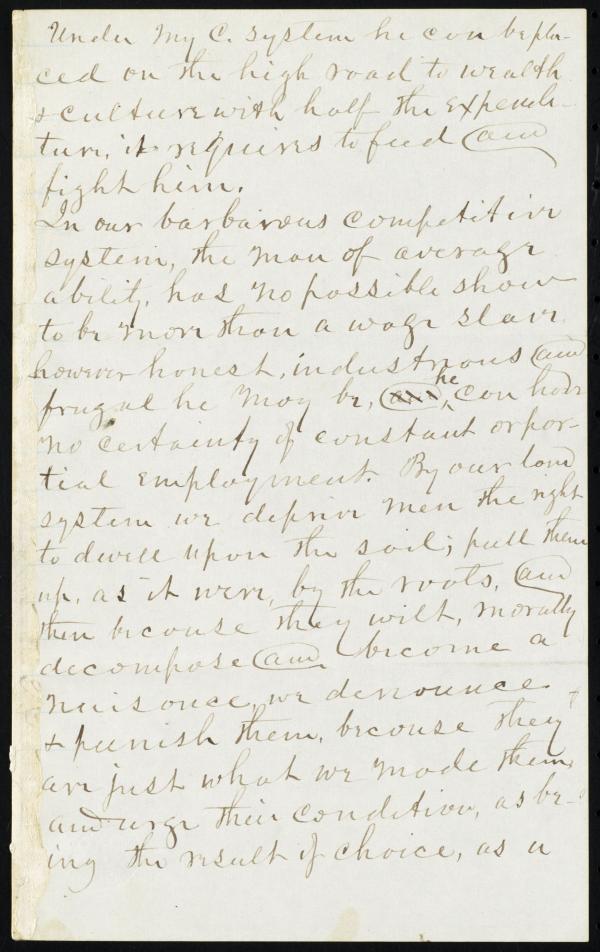 Under my C. system he can be pla-
ced on the high road to wealth
& culture with half the expendi-
ture, it requires to feed and
fight him.
In our barbarous competitive
system, the man of average
ability, has no possible show
to be more than a wage slave
however honest, industrious and
frugal he may be, and he can have
no certainty of constant or par-
tial employment. By our land
system we deprive men the right
to dwell upon the soil; pull them
up, as it were, by the roots, and
then because they wilt, morally
decompose and become a
nuisance, we denounce
& punish them, because they
are just what we made them,
and urge their condition, as be-
ing the result of choice, as a